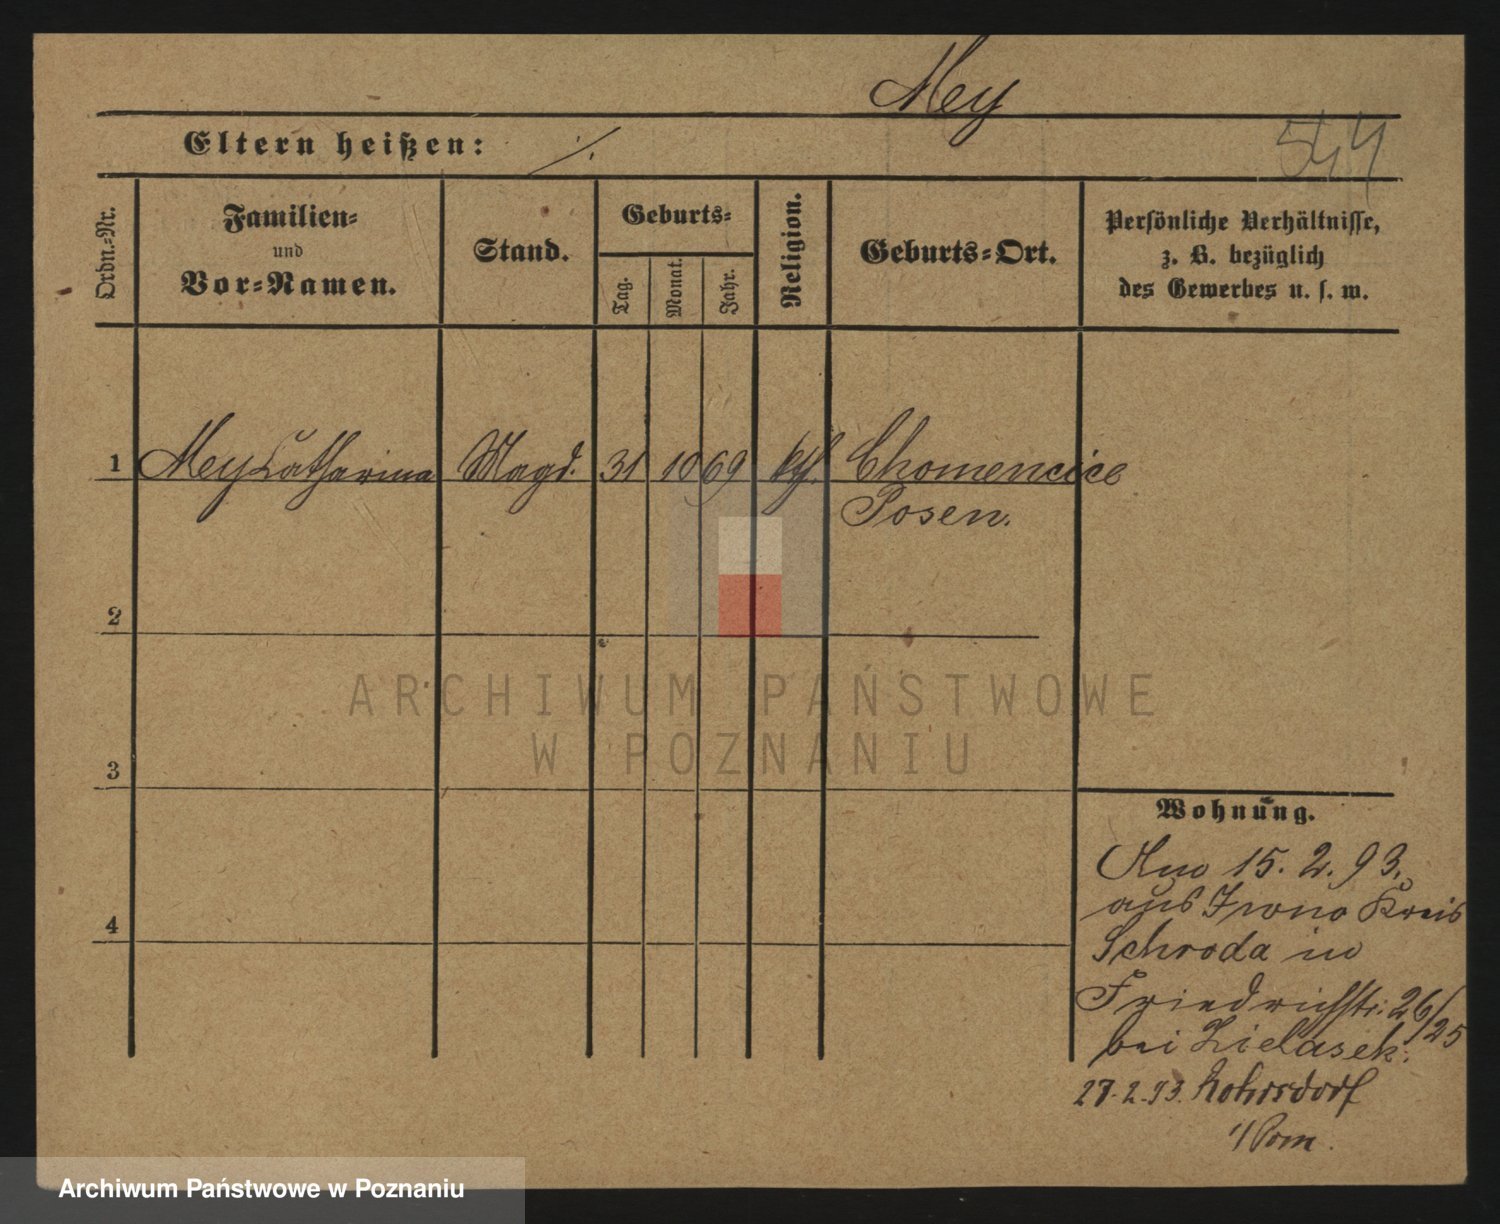 Mey
Eltern heißen: ./.
544
Ordn.=Nr.
Familien=
und
Vor=Namen.
Stand.
Geburts=
Tag.
Monat.
Jahr.
Religion.
Geburts=Ort.
Persönliche Verhältnisse,
z. B. bezüglich
des Gewerbes u. s. w.
1 Mey Catharina Magd. 31 10 69 kth. Chomencice
Posen.
2
3
4
ARCHIWUM PAŃSTWOWE
W POZNANIU
Wohnung.
15. 2. 93.
aus Iwno Kreis
Schroda in
Friedrichstr. 26/25
bei Zielasek.
27. 2. 93. Rohrsdorf
Archiwum Państwowe w Poznaniu